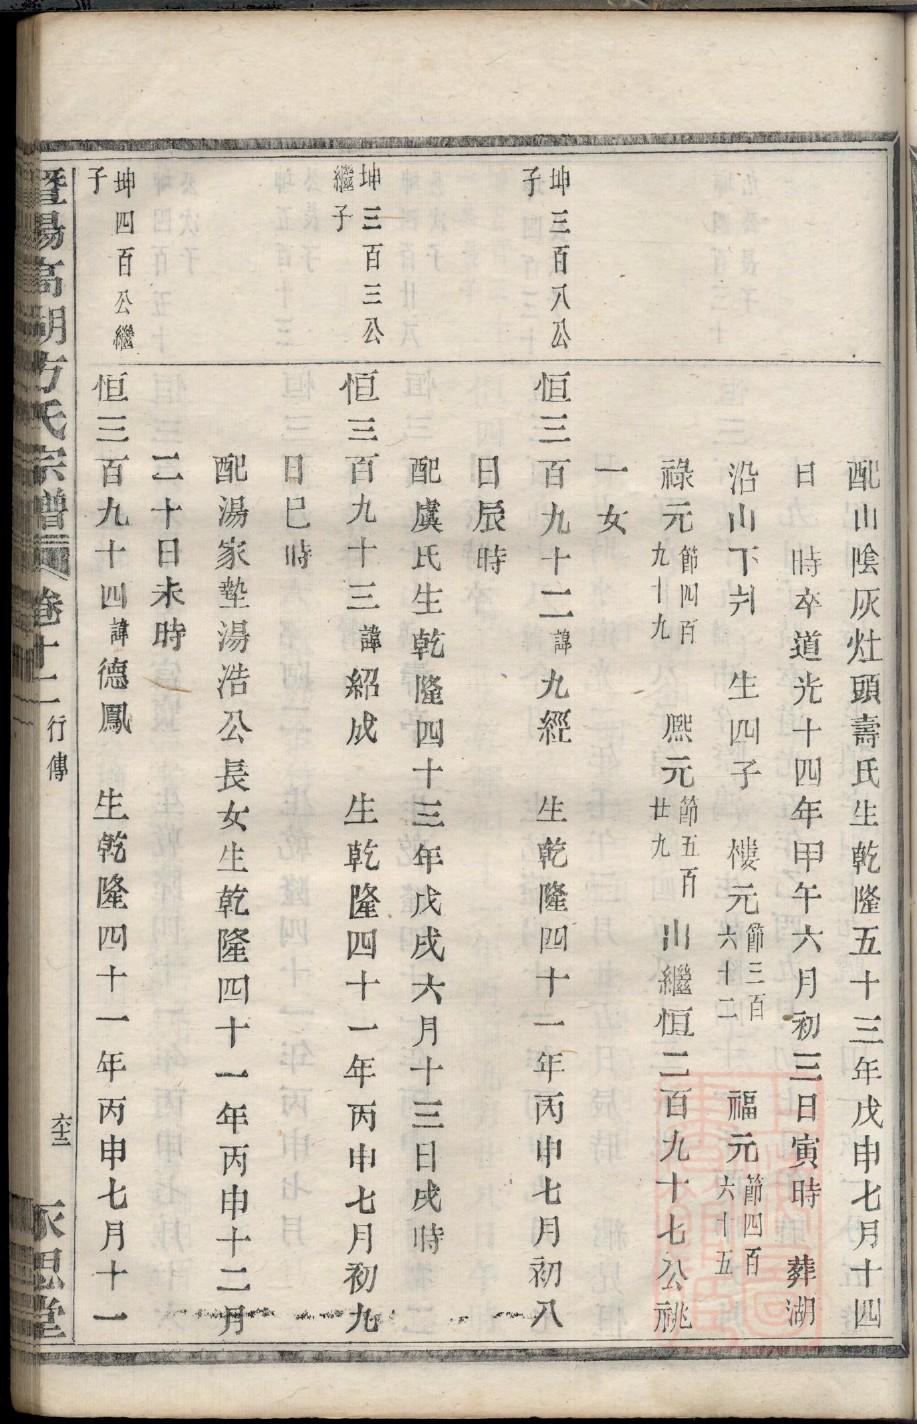 配山陰灰灶頭壽氏生乾隆五十三年戊申七月十四
日　時卒道光十四年甲午六月初三日寅時　葬湖
沿山下𡉏　生四子　樓元節三百六十二　福元節四百六十五
祿元節四百九十九　熈元節五百廿九　出繼恒二百九十七公祧
一女
坤三百八公子
恒三百九十二諱九經　生乾隆四十一年丙申七月初八
日辰時
配虞氏生乾隆四十三年戊戌六月十三日戌時
坤三百三公繼子
恒三百九十三諱紹成　生乾隆四十一年丙申七月初九
日巳時
配湯家墊湯浩公長女生乾隆四十一年丙申十二月
二十日未時
坤四百公繼子
恒三百九十四諱德鳳　生乾隆四十一年丙申七月十一
暨陽高湖方氏宗譜　卷十二　行傳　六十三　永思堂